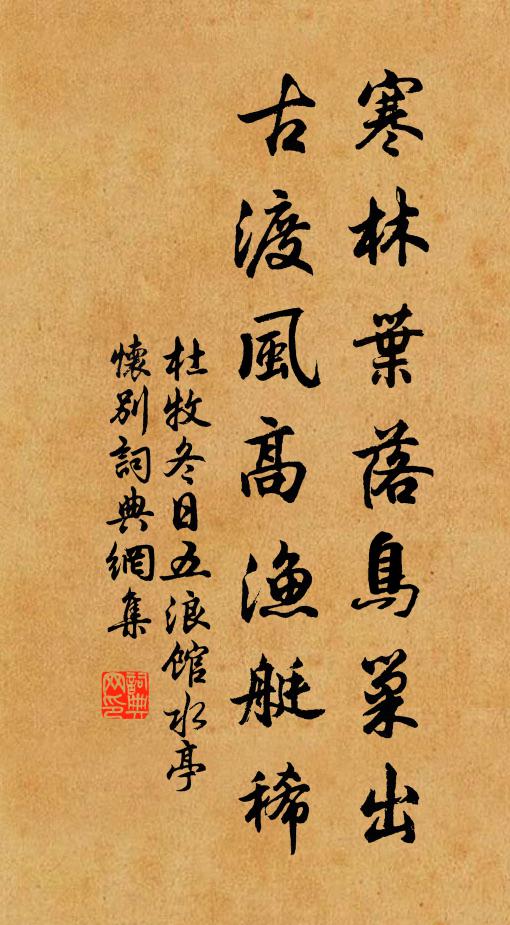 寒林葉落鳥巢出
古渡風高漁艇稀
杜牧冬日五浪館水亭
懷別詞典網集
詞典網印